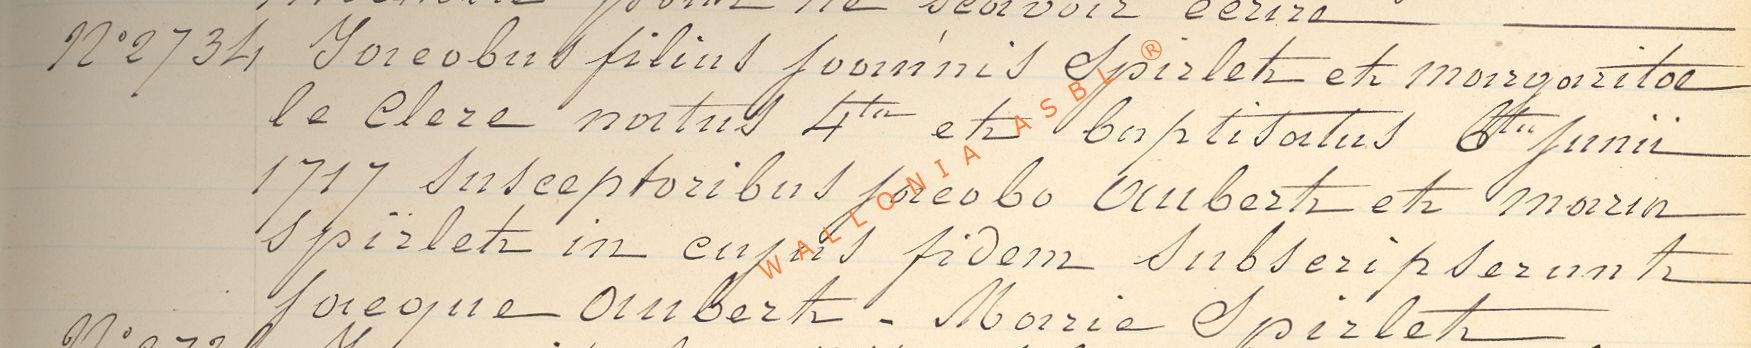 pour ne sçavoir ecrire
N°2734 Jacobus filius joannis Spirlet et margaritae
le Clerc natus 4ta et baptisatus 6ta junii
1717 susceptoribus jacobo aubert et maria
spirlet in cujus fidem subscripserunt
jacque aubert - Marie Spirlet
WALLONIA ASBL ®